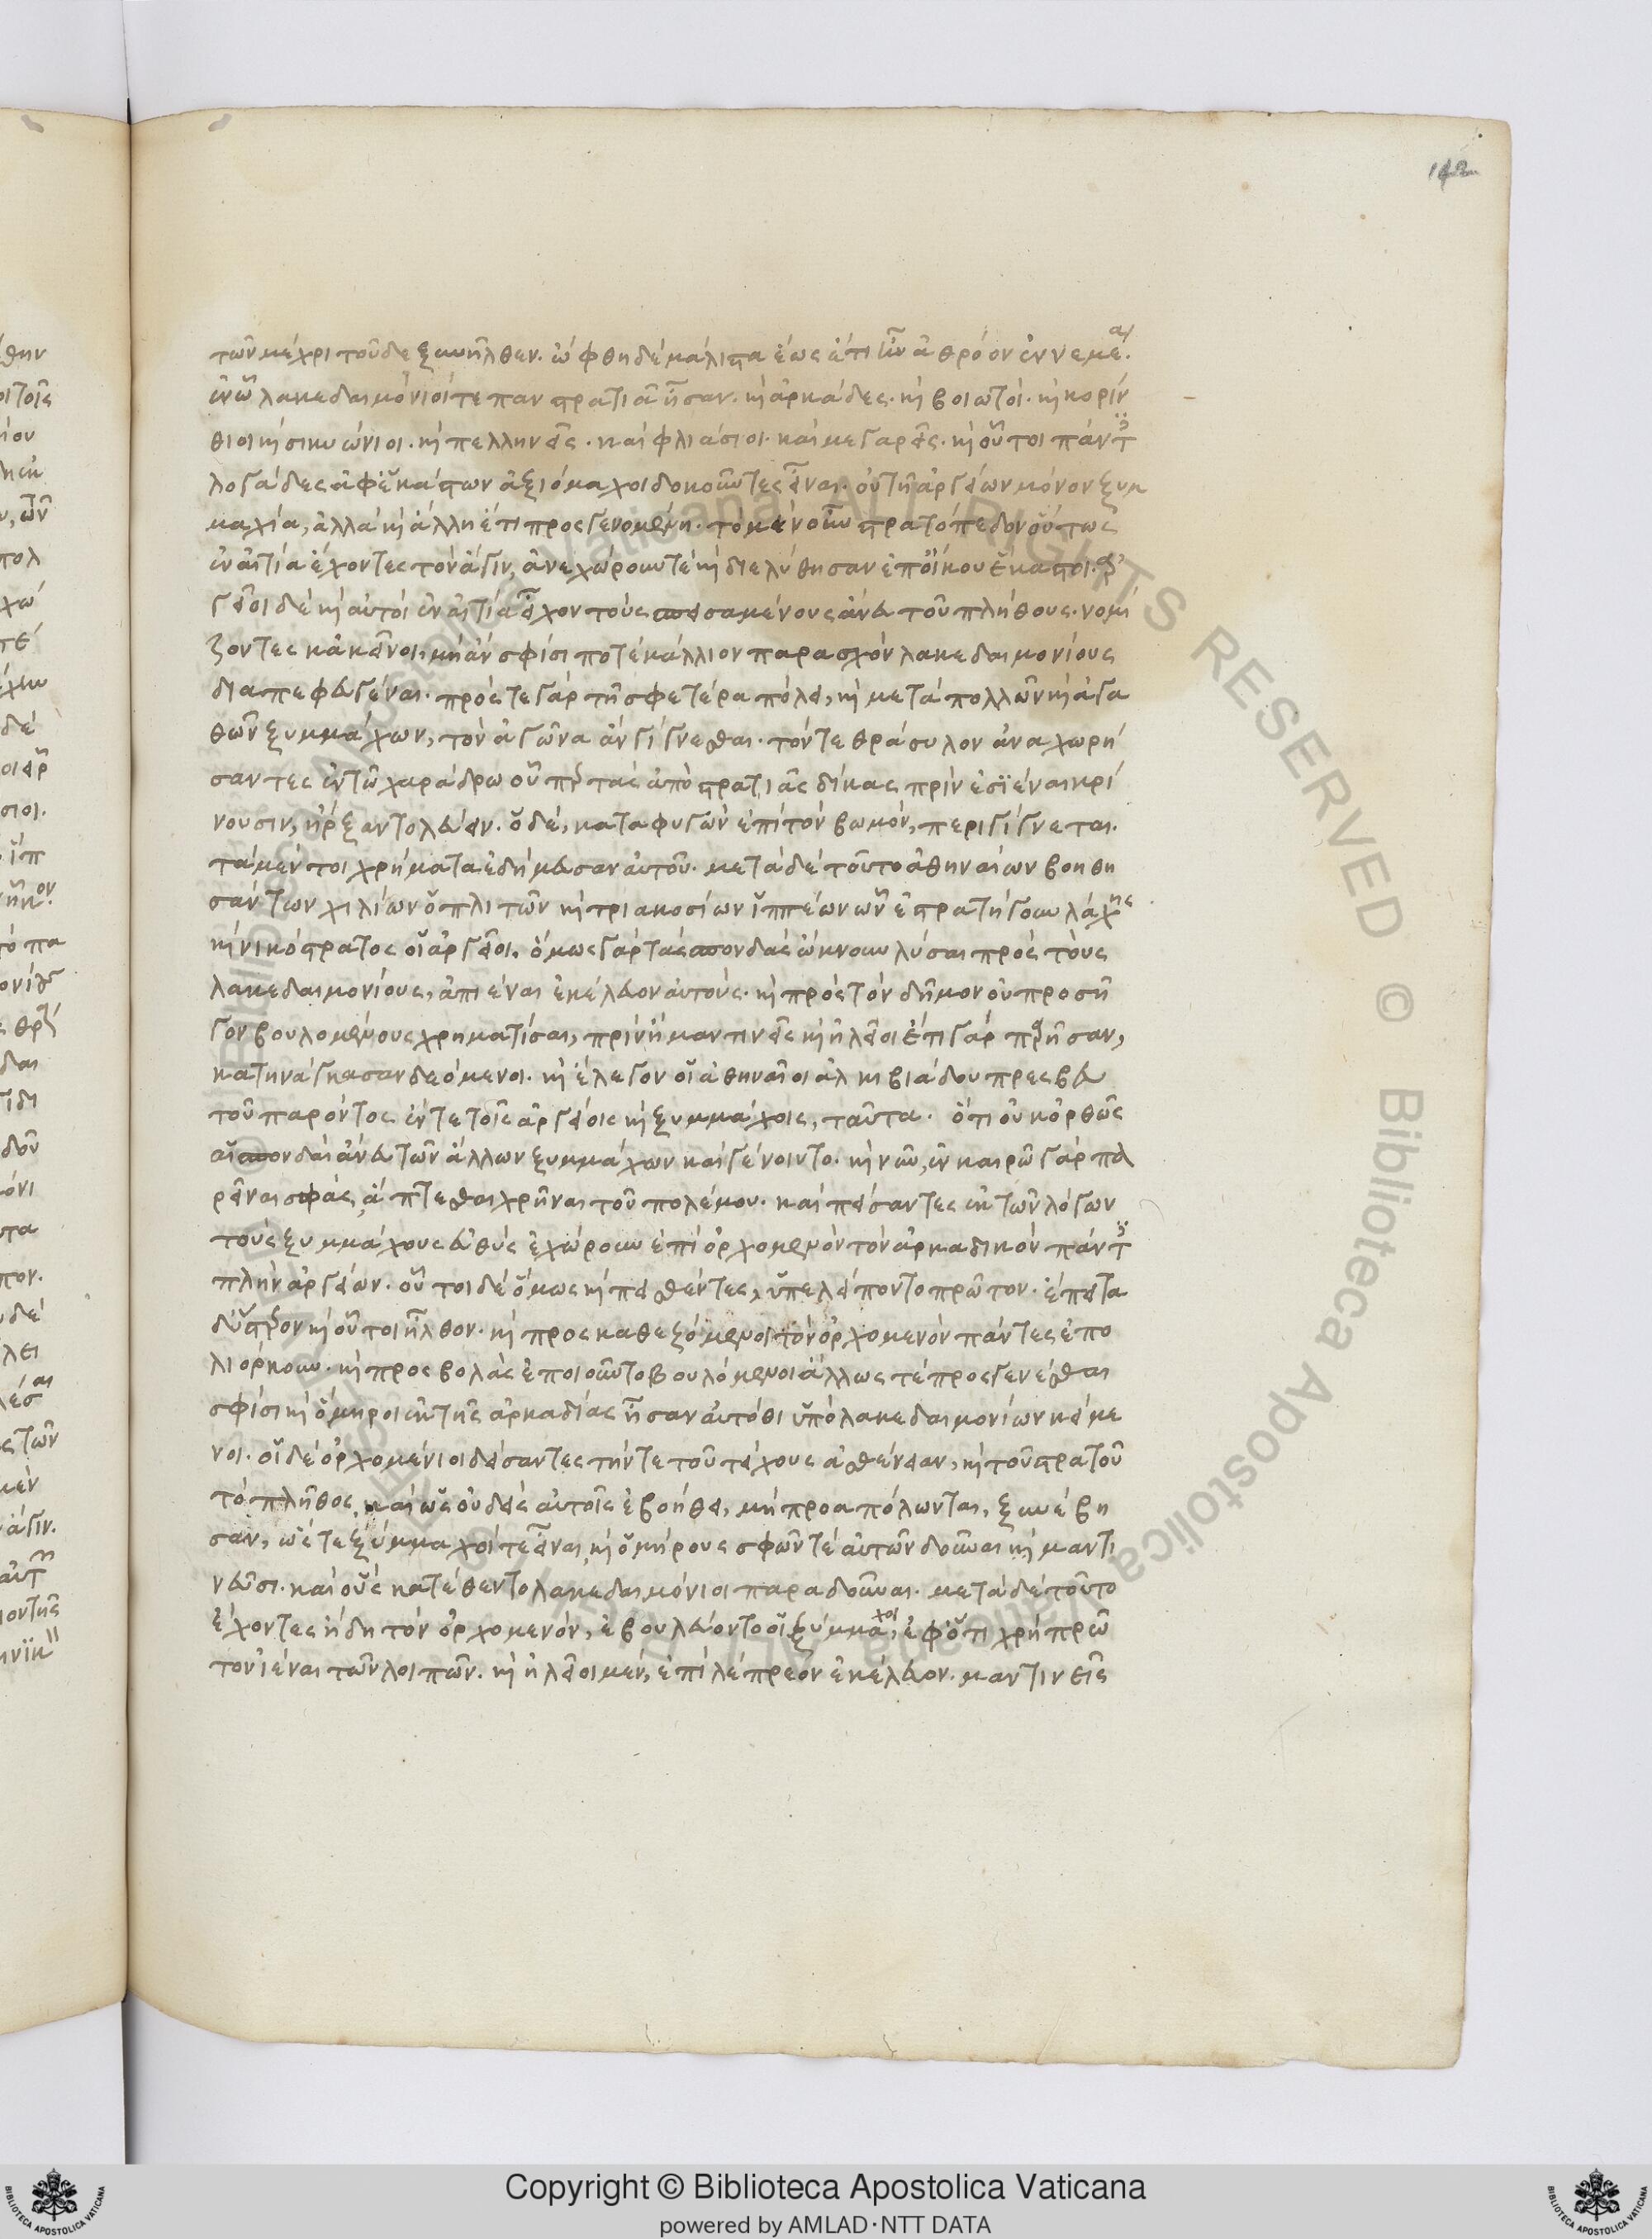 142
τῶν μέχρι τοῦδε ξυνῆλθεν. ὤφθη δὲ μάλιστα ἕως ἔτι ἦν ἀθρόον ἐν νεμέᾳ.
ἐν ᾧ λακεδαιμόνιοί τε πανστρατιᾷ ἦσαν. καὶ ἀρκάδες. καὶ βοιωτοί. καὶ κορίν
θιοι καὶ σικυώνιοι. καὶ πελληνεῖς. καὶ φλιάσιοι. καὶ μεγαρεῖς. καὶ οὗτοι πάντες
λογάδες ἀφ' ἑκάστων ἀξιόμαχοι δοκοῦντες εἶναι. οὐ τῇ ἀργείων μόνον ξυμ
μαχία, ἀλλὰ καὶ ἄλλη ἔτι προσγενομένη. τὸ μὲν οὖν στρατόπεδον οὕτως
ἐν αἰτίᾳ ἔχοντες τὸν ἆγιν, ἀνεχώρουν τὲ καὶ διελύθησαν ἐπ' οἴκου ἕκαστοι. ἀρ
γεῖοι δὲ καὶ αὐτοὶ ἐν αἰτίᾳ εἶχον τοὺς σπεισαμένους ἄνευ τοῦ πλήθους. νομί
ζοντες κἀκεῖνοι, μὴ ἂν σφίσι ποτὲ κάλλιον παρασχὸν λακεδαιμονίους
διαπεφευγέναι. πρός τε γὰρ τῇ σφετέρα πόλει, καὶ μετὰ πολλῶν καὶ ἀγα
θῶν ξυμμάχων, τὸν ἀγῶνα ἂν γίγνεσθαι. τόν τε θράσυλον ἀναχωρή
σαντες ἐν τῷ χαράδρω οὗπερ τὰς ἀπὸ στρατιᾶς δίκας πρὶν ἐσϊέναι κρί
νουσιν, ἤρξαντο λεύειν. ὁ δὲ, καταφυγὼν ἐπὶ τὸν βωμὸν, περιγίγνεται.
τὰ μέντοι χρήματα ἐδήμευσαν αὐτοῦ. μετὰ δὲ τοῦτο ἀθηναίων βοηθη
σάντων χιλίων ὁπλιτῶν καὶ τριακοσίων ἱππέων ὧν ἐστρατήγουν λάχης
καὶ νικόστρατος οἱ ἀργεῖοι. ὅμως γὰρ τὰς σπονδὰς ὤκνουν λύσαι πρὸς τοὺς
λακεδαιμονίους, ἀπιέναι ἐκέλευον αὐτούς. καὶ πρὸς τὸν δῆμον οὐ προσῆ
γον βουλομένους χρηματίσαι, πρὶν ἢ μαντινεῖς καὶ ἠλεῖοι ἔτι γὰρ παρῆσαν,
κατηνάγκασαν δεόμενοι. καὶ ἔλεγον οἱ ἀθηναῖοι ἀλκιβιάδου πρεσβευ
τοῦ παρόντος ἔν τε τοῖς ἀργείοις καὶ ξυμμάχοις, ταῦτα. ὅτι οὐκ ὀρθῶς
αἱ σπονδαὶ ἄνευ τῶν ἄλλων ξυμμάχων καὶ γένοιντο. καὶ νῦν, ἐν καιρῷ γὰρ πα
ρεῖναι σφᾶς, ἅπτεσθαι χρῆναι τοῦ πολέμου. καὶ πείσαντες ἐκ τῶν λόγων
τοὺς ξυμμάχους εὐθὺς ἐχώρουν ἐπὶ ὀρχομενὸν τὸν ἀρκαδικὸν πάντες
πλὴν ἀργείων. οὗτοι δὲ ὅμως καὶ πεισθέντες, ὑπελείποντο πρῶτον. ἔπειτα
δ' ὕστερον καὶ οὗτοι ἦλθον. καὶ προσκαθεζόμενοι τὸν ὀρχομενὸν πάντες ἐπο
λιόρκουν. καὶ προσβολὰς ἐποιοῦντο βουλόμενοι ἄλλως τὲ προσγενέσθαι
σφίσι καὶ ὅμηροι ἐκ τῆς ἀρκαδίας ἦσαν αὐτόθι ὑπὸ λακεδαιμονίων κείμε
νοι. οἱ δὲ ὀρχομένιοι δείσαντες τήν τε τοῦ τείχους ἀσθένειαν, καὶ τοῦ στρατοῦ
τὸ πλῆθος, καὶ ὡς οὐδεὶς αὐτοῖς ἐβοήθει, μὴ προαπόλωνται, ξυνέβη
σαν, ὥστε ξύμμαχοί τε εἶναι, καὶ ὁμήρους σφῶν τὲ αὐτῶν δοῦναι καὶ μαντι
νεῦσι. καὶ οὓς κατέθεντο λακεδαιμόνιοι παραδοῦναι. μετὰ δὲ τοῦτο
ἔχοντες ἤδη τὸν ὀρχομενὸν, ἐβουλεύοντο οἱ ξύμμαχοι, ἐφ' ὅτι χρὴ πρῶ
τον ἰέναι τῶν λοιπῶν. καὶ ἠλεῖοι μὲν, ἐπὶ λέπρεον ἐκέλευον. μαντινεῖς
Copyright © Biblioteca Apostolica Vaticana
powered by AMLAD·NTT DATA